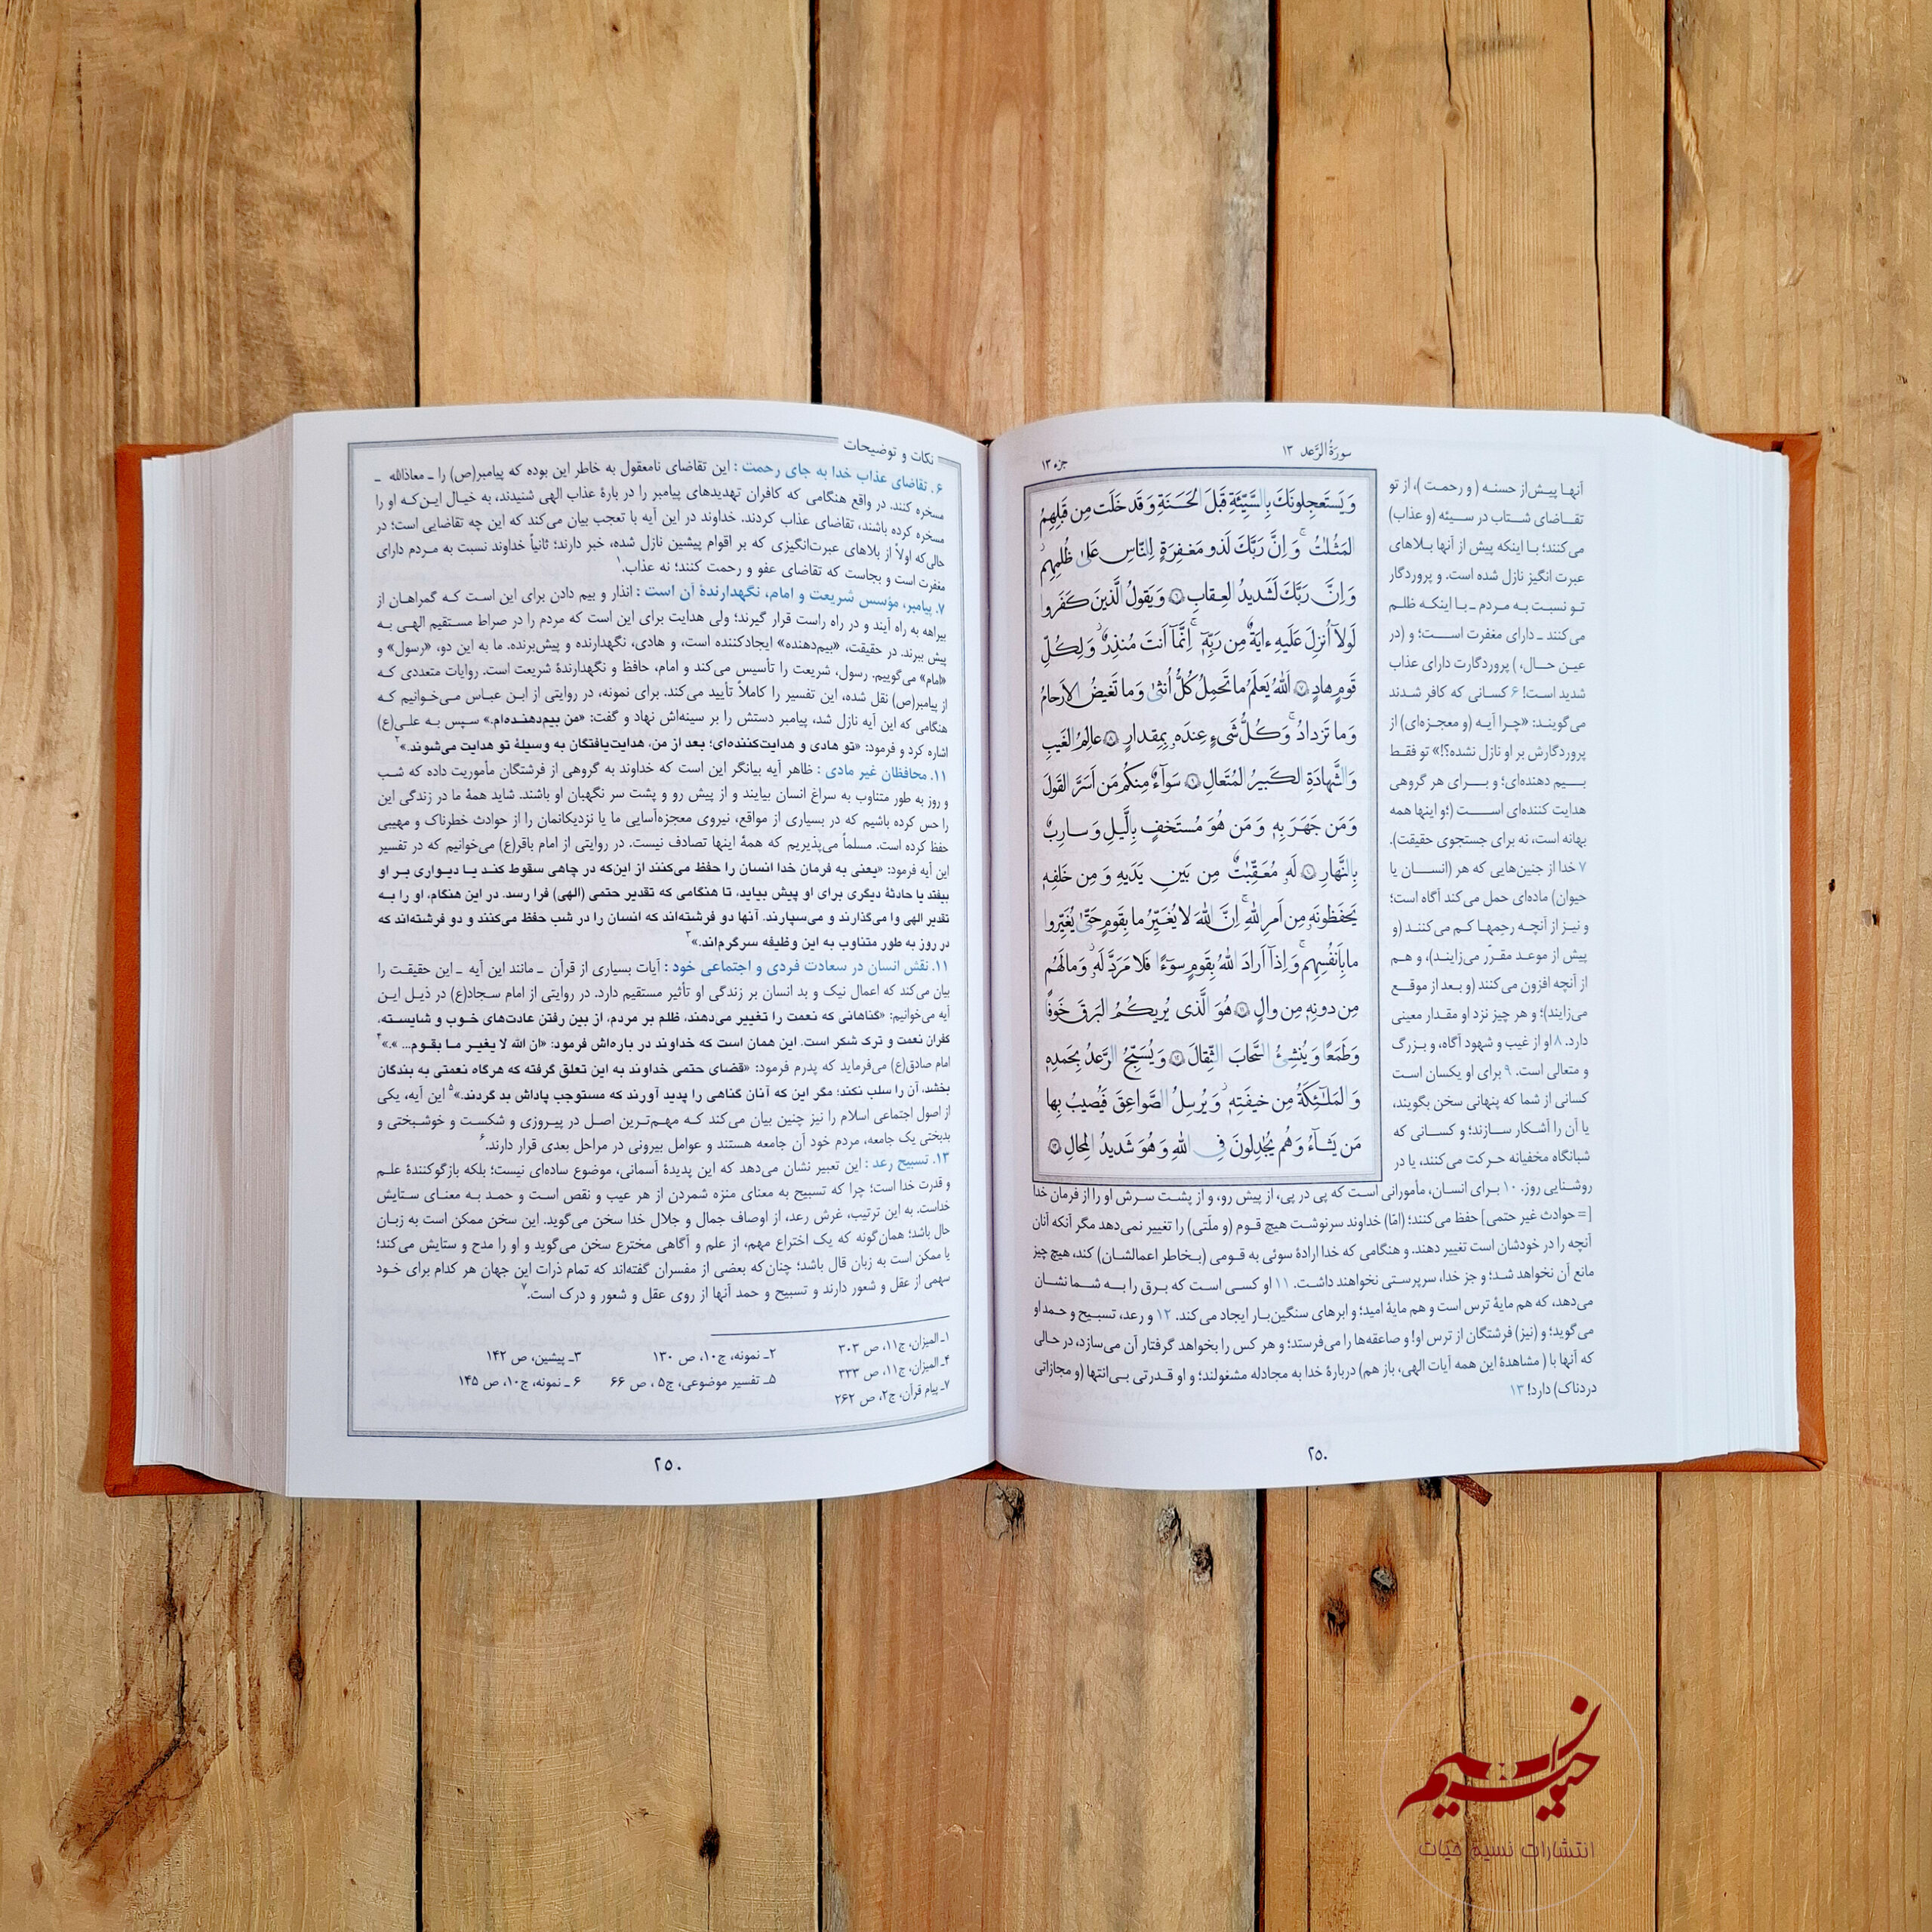 سورَةُ الرَّعد ١٣
جزء ١٣
وَ يَستَعجِلونَكَ بِالسَّيِّئَةِ قَبلَ الحَسَنَةِ وَ قَد خَلَت مِن قَبلِهِمُ
المَثُلٰتُ ۗ وَ اِنَّ رَبَّكَ لَذو مَغفِرَةٍ لِلنّاسِ عَلىٰ ظُلمِهِم ۖ
وَ اِنَّ رَبَّكَ لَشَديدُ العِقابِ ﴿٦﴾ وَ يَقولُ الَّذينَ كَفَروا
لَولاۤ اُنزِلَ عَلَيهِ ءايَةٌ مِن رَبِّهٖ ۗ اِنَّماۤ اَنتَ مُنذِرٌ ۖ وَ لِكُلِّ
قَومٍ هادٍ ﴿٧﴾ اَللهُ يَعلَمُ ما تَحمِلُ كُلُّ اُنثىٰ وَ ما تَغيضُ الاَرحامُ
وَ ما تَزدادُ ۖ وَ كُلُّ شَىءٍ عِندَهٗ بِمِقدارٍ ﴿٨﴾ عالِمُ الغَيبِ
وَ الشَّهادَةِ الكَبيرُ المُتَعالِ ﴿٩﴾ سَوآءٌ مِنكُم مَن اَسَرَّ القَولَ
وَ مَن جَهَرَ بِهٖ وَ مَن هُوَ مُستَخفٍ بِالَّيلِ وَ سارِبٌ
بِالنَّهارِ ﴿١٠﴾ لَهٗ مُعَقِّبٰتٌ مِن بَينِ يَدَيهِ وَ مِن خَلفِهٖ
يَحفَظونَهٗ مِن اَمرِ اللهِ ۗ اِنَّ اللهَ لا يُغَيِّرُ ما بِقَومٍ حَتّىٰ يُغَيِّروا
ما بِاَنفُسِهِم ۗ وَ اِذاۤ اَرادَ اللهُ بِقَومٍ سوۤءًا فَلا مَرَدَّ لَهٗ ۚ وَ ما لَهُم
مِن دونِهٖ مِن والٍ ﴿١١﴾ هُوَ الَّذى يُريكُمُ البَرقَ خَوفًا
وَ طَمَعًا وَ يُنشِئُ السَّحابَ الثِّقالَ ﴿١٢﴾ وَ يُسَبِّحُ الرَّعدُ بِحَمدِهٖ
وَ المَلٰٓئِكَةُ مِن خيفَتِهٖ وَ يُرسِلُ الصَّواعِقَ فَيُصيبُ بِها
مَن يَشآءُ وَ هُم يُجٰدِلونَ فِى اللهِ وَ هُوَ شَديدُ المِحالِ ﴿١٣﴾
آنها پیش از حسنه ( و رحمت )، از تو
تقاضای شتاب در سیئه (و عذاب)
می‌کنند؛ با اینکه پیش از آنها بلاهای
عبرت انگیز نازل شده است. و پروردگار
تو نسبت به مردم ـ با اینکه ظلم
می‌کنند ـ دارای مغفرت است؛ و (در
عین حال، ) پروردگارت دارای عذاب
شدید است! ۶ کسانی که کافر شدند
می‌گویند: «چرا آیه (و معجزه‌ای) از
پروردگارش بر او نازل نشده؟!» تو فقط
بیم دهنده‌ای؛ و برای هر گروهی
هدایت کننده‌ای است (؛و اینها همه
بهانه است، نه برای جستجوی حقیقت).
۷ خدا از جنین‌هایی که هر (انسان یا
حیوان) ماده‌ای حمل می‌کند آگاه است؛
و نیز از آنچه رحِمها کم می‌کنند (و
پیش از موعد مقرّر می‌زایند)، و هم
از آنچه افزون می‌کنند (و بعد از موقع
می‌زایند)؛ و هر چیز نزد او مقدار معینی
دارد. ۸ او از غیب و شهود آگاه، و بزرگ
و متعالی است. ۹ برای او یکسان است
کسانی از شما که پنهانی سخن بگویند،
یا آن را آشکار سازند؛ و کسانی که
شبانگاه مخفیانه حرکت می‌کنند، یا در
روشنایی روز. ۱۰ برای انسان، مأمورانی است که پی در پی، از پیش رو، و از پشت سرش او را از فرمان خدا
[= حوادث غیر حتمی] حفظ می‌کنند؛ (امّا) خداوند سرنوشت هیچ قوم (و ملّتی) را تغییر نمی‌دهد مگر آنکه آنان
آنچه را در خودشان است تغییر دهند. و هنگامی که خدا ارادهٔ سوئی به قومی (بخاطر اعمالشان) کند، هیچ چیز
مانع آن نخواهد شد؛ و جز خدا، سرپرستی نخواهند داشت. ۱۱ او کسی است که برق را به شما نشان
می‌دهد، که هم مایهٔ ترس است و هم مایهٔ امید؛ و ابرهای سنگین‌بار ایجاد می‌کند. ۱۲ و رعد، تسبیح و حمد او
می‌گوید؛ و (نیز) فرشتگان از ترس او! و صاعقه‌ها را می‌فرستد؛ و هر کس را بخواهد گرفتار آن می‌سازد، در حالی
که آنها با ( مشاهدهٔ این همه آیات الهی، باز هم) دربارهٔ خدا به مجادله مشغولند؛ و او قدرتی بی‌انتها (و مجازاتی
دردناک) دارد! ۱۳
۲۵۰
نکات و توضیحات
۶. تقاضای عذاب خدا به جای رحمت : این تقاضای نامعقول به خاطر این بوده که پیامبر(ص) را ـ معاذالله ـ
مسخره کنند. در واقع هنگامی که کافران تهدیدهای پیامبر را در بارهٔ عذاب الهی شنیدند، به خیال این‌که او را
مسخره کرده باشند، تقاضای عذاب کردند. خداوند در این آیه با تعجب بیان می‌کند که این چه تقاضایی است؛ در
حالی‌که اولاً از بلاهای عبرت‌انگیزی که بر اقوام پیشین نازل شده، خبر دارند؛ ثانیاً خداوند نسبت به مردم دارای
مغفرت است و بجاست که تقاضای عفو و رحمت کنند؛ نه عذاب.۱
۷. پیامبر، مؤسس شریعت و امام، نگهدارندهٔ آن است : انذار و بیم دادن برای این است که گمراهان از
بیراهه به راه آیند و در راه راست قرار گیرند؛ ولی هدایت برای این است که مردم را در صراط مستقیم الهی به
پیش ببرند. در حقیقت، «بیم‌دهنده» ایجادکننده است، و هادی، نگهدارنده و پیش‌برنده. ما به این دو، «رسول» و
«امام» می‌گوییم. رسول، شریعت را تأسیس می‌کند و امام، حافظ و نگهدارندهٔ شریعت است. روایات متعددی که
از پیامبر(ص) نقل شده، این تفسیر را کاملاً تأیید می‌کند. برای نمونه، در روایتی از ابن عباس می‌خوانیم که
هنگامی که این آیه نازل شد، پیامبر دستش را بر سینه‌اش نهاد و گفت: «من بیم‌دهنده‌ام.» سپس به علی(ع)
اشاره کرد و فرمود: «تو هادی و هدایت‌کننده‌ای؛ بعد از من، هدایت‌یافتگان به وسیلهٔ تو هدایت می‌شوند.»۲
۱۱. محافظان غیر مادی : ظاهر آیه بیانگر این است که خداوند به گروهی از فرشتگان مأموریت داده که شب
و روز به طور متناوب به سراغ انسان بیایند و از پیش رو و پشت سر نگهبان او باشند. شاید همهٔ ما در زندگی این
را حس کرده باشیم که در بسیاری از مواقع، نیروی معجزه‌آسایی ما یا نزدیکانمان را از حوادث خطرناک و مهیبی
حفظ کرده است. مسلماً می‌پذیریم که همهٔ اینها تصادف نیست. در روایتی از امام باقر(ع) می‌خوانیم که در تفسیر
این آیه فرمود: «یعنی به فرمان خدا انسان را حفظ می‌کنند از این‌که در چاهی سقوط کند یا دیواری بر او
بیفتد یا حادثهٔ دیگری برای او پیش بیاید، تا هنگامی که تقدیر حتمی (الهی) فرا رسد. در این هنگام، او را به
تقدیر الهی وا می‌گذارند و می‌سپارند. آنها دو فرشته‌اند که انسان را در شب حفظ می‌کنند و دو فرشته‌اند که
در روز به طور متناوب به این وظیفه سرگرم‌اند.»۳
۱۱. نقش انسان در سعادت فردی و اجتماعی خود : آیات بسیاری از قرآن ـ مانند این آیه ـ این حقیقت را
بیان می‌کند که اعمال نیک و بد انسان بر زندگی او تأثیر مستقیم دارد. در روایتی از امام سجاد(ع) در ذیل این
آیه می‌خوانیم: «گناهانی که نعمت را تغییر می‌دهند، ظلم بر مردم، از بین رفتن عادت‌های خوب و شایسته،
کفران نعمت و ترک شکر است. این همان است که خداوند در باره‌اش فرمود: «ان الله لا یغیر ما بقوم... ».»۴
امام صادق(ع) می‌فرماید که پدرم فرمود: «قضای حتمی خداوند به این تعلق گرفته که هرگاه نعمتی به بندگان
بخشد، آن را سلب نکند؛ مگر این که آنان گناهی را پدید آورند که مستوجب پاداش بد گردند.»۵ این آیه، یکی
از اصول اجتماعی اسلام را نیز چنین بیان می‌کند که مهم‌ترین اصل در پیروزی و شکست و خوشبختی و
بدبختی یک جامعه، مردم خود آن جامعه هستند و عوامل بیرونی در مراحل بعدی قرار دارند.۶
۱۳. تسبیح رعد : این تعبیر نشان می‌دهد که این پدیدهٔ آسمانی، موضوع ساده‌ای نیست؛ بلکه بازگوکنندهٔ علم
و قدرت خدا است؛ چرا که تسبیح به معنای منزه شمردن از هر عیب و نقص است و حمد به معنای ستایش
خداست. به این ترتیب، غرش رعد، از اوصاف جمال و جلال خدا سخن می‌گوید. این سخن ممکن است به زبان
حال باشد؛ همان‌گونه که یک اختراع مهم، از علم و آگاهی مخترع سخن می‌گوید و او را مدح و ستایش می‌کند؛
یا ممکن است به زبان قال باشد؛ چنان‌که بعضی از مفسران گفته‌اند که تمام ذرات این جهان هر کدام برای خود
سهمی از عقل و شعور دارند و تسبیح و حمد آنها از روی عقل و شعور و درک است.۷
۱ـ المیزان، ج۱۱، ص ۳۰۳ ۲ـ نمونه، ج۱۰، ص ۱۳۰ ۳ـ پیشین، ص ۱۴۲
۴ـ المیزان، ج۱۱، ص ۳۳۳ ۵ـ تفسیر موضوعی، ج۵ ، ص ۶۶ ۶ ـ نمونه، ج۱۰، ص ۱۴۵
۷ـ پیام قرآن، ج۲، ص ۲۶۲
۲۵۰
نسیم حیات
انتشارات نسیم حیات